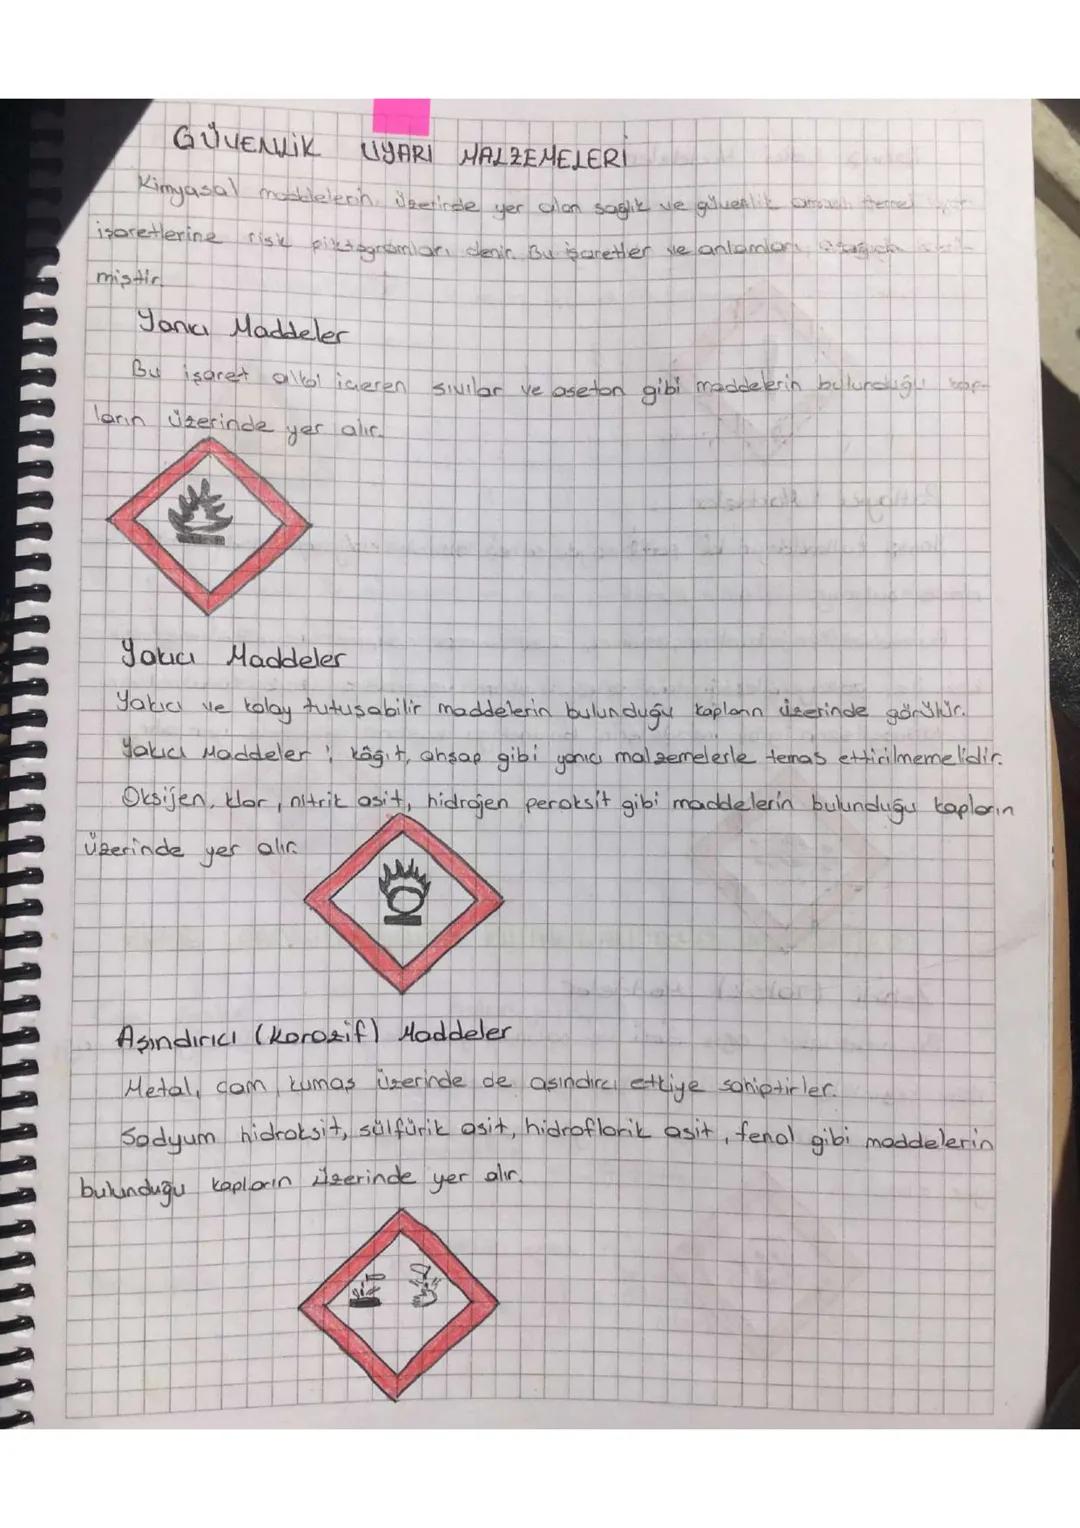 GÜVENLİK UYARI MALZEMELERİ
Kimyasal maddelerin üzerinde yer alan sağlık ve güvenlik amaçlı temel
işaretlerine risk piktogramları denir. Bu işaretler ve anlamları aşağıda
miştir.
Yanıcı Maddeler
Bu işaret alkol içeren sıvılar ve aseton gibi maddelerin bulunduğu kap-
ların üzerinde yer alır.
Yakıcı Maddeler
Yakıcı ve kolay tutuşabilir maddelerin bulunduğu kapların üzerinde görülür.
Yakıcı Maddeler ; kâğıt, ahşap gibi yanıcı malzemelerle temas ettirilmemelidir.
Oksijen, klor, nitrik asit, hidrojen peroksit gibi maddelerin bulunduğu kapların
üzerinde yer alır.
Aşındırıcı (Korozif) Maddeler
Metal, cam, kumaş üzerinde de aşındırcı etkiye sahiptirler.
Sodyum hidroksit, sülfürik asit, hidroflorik asit, fenol gibi maddelerin
bulunduğu kapların üzerinde yer alır.